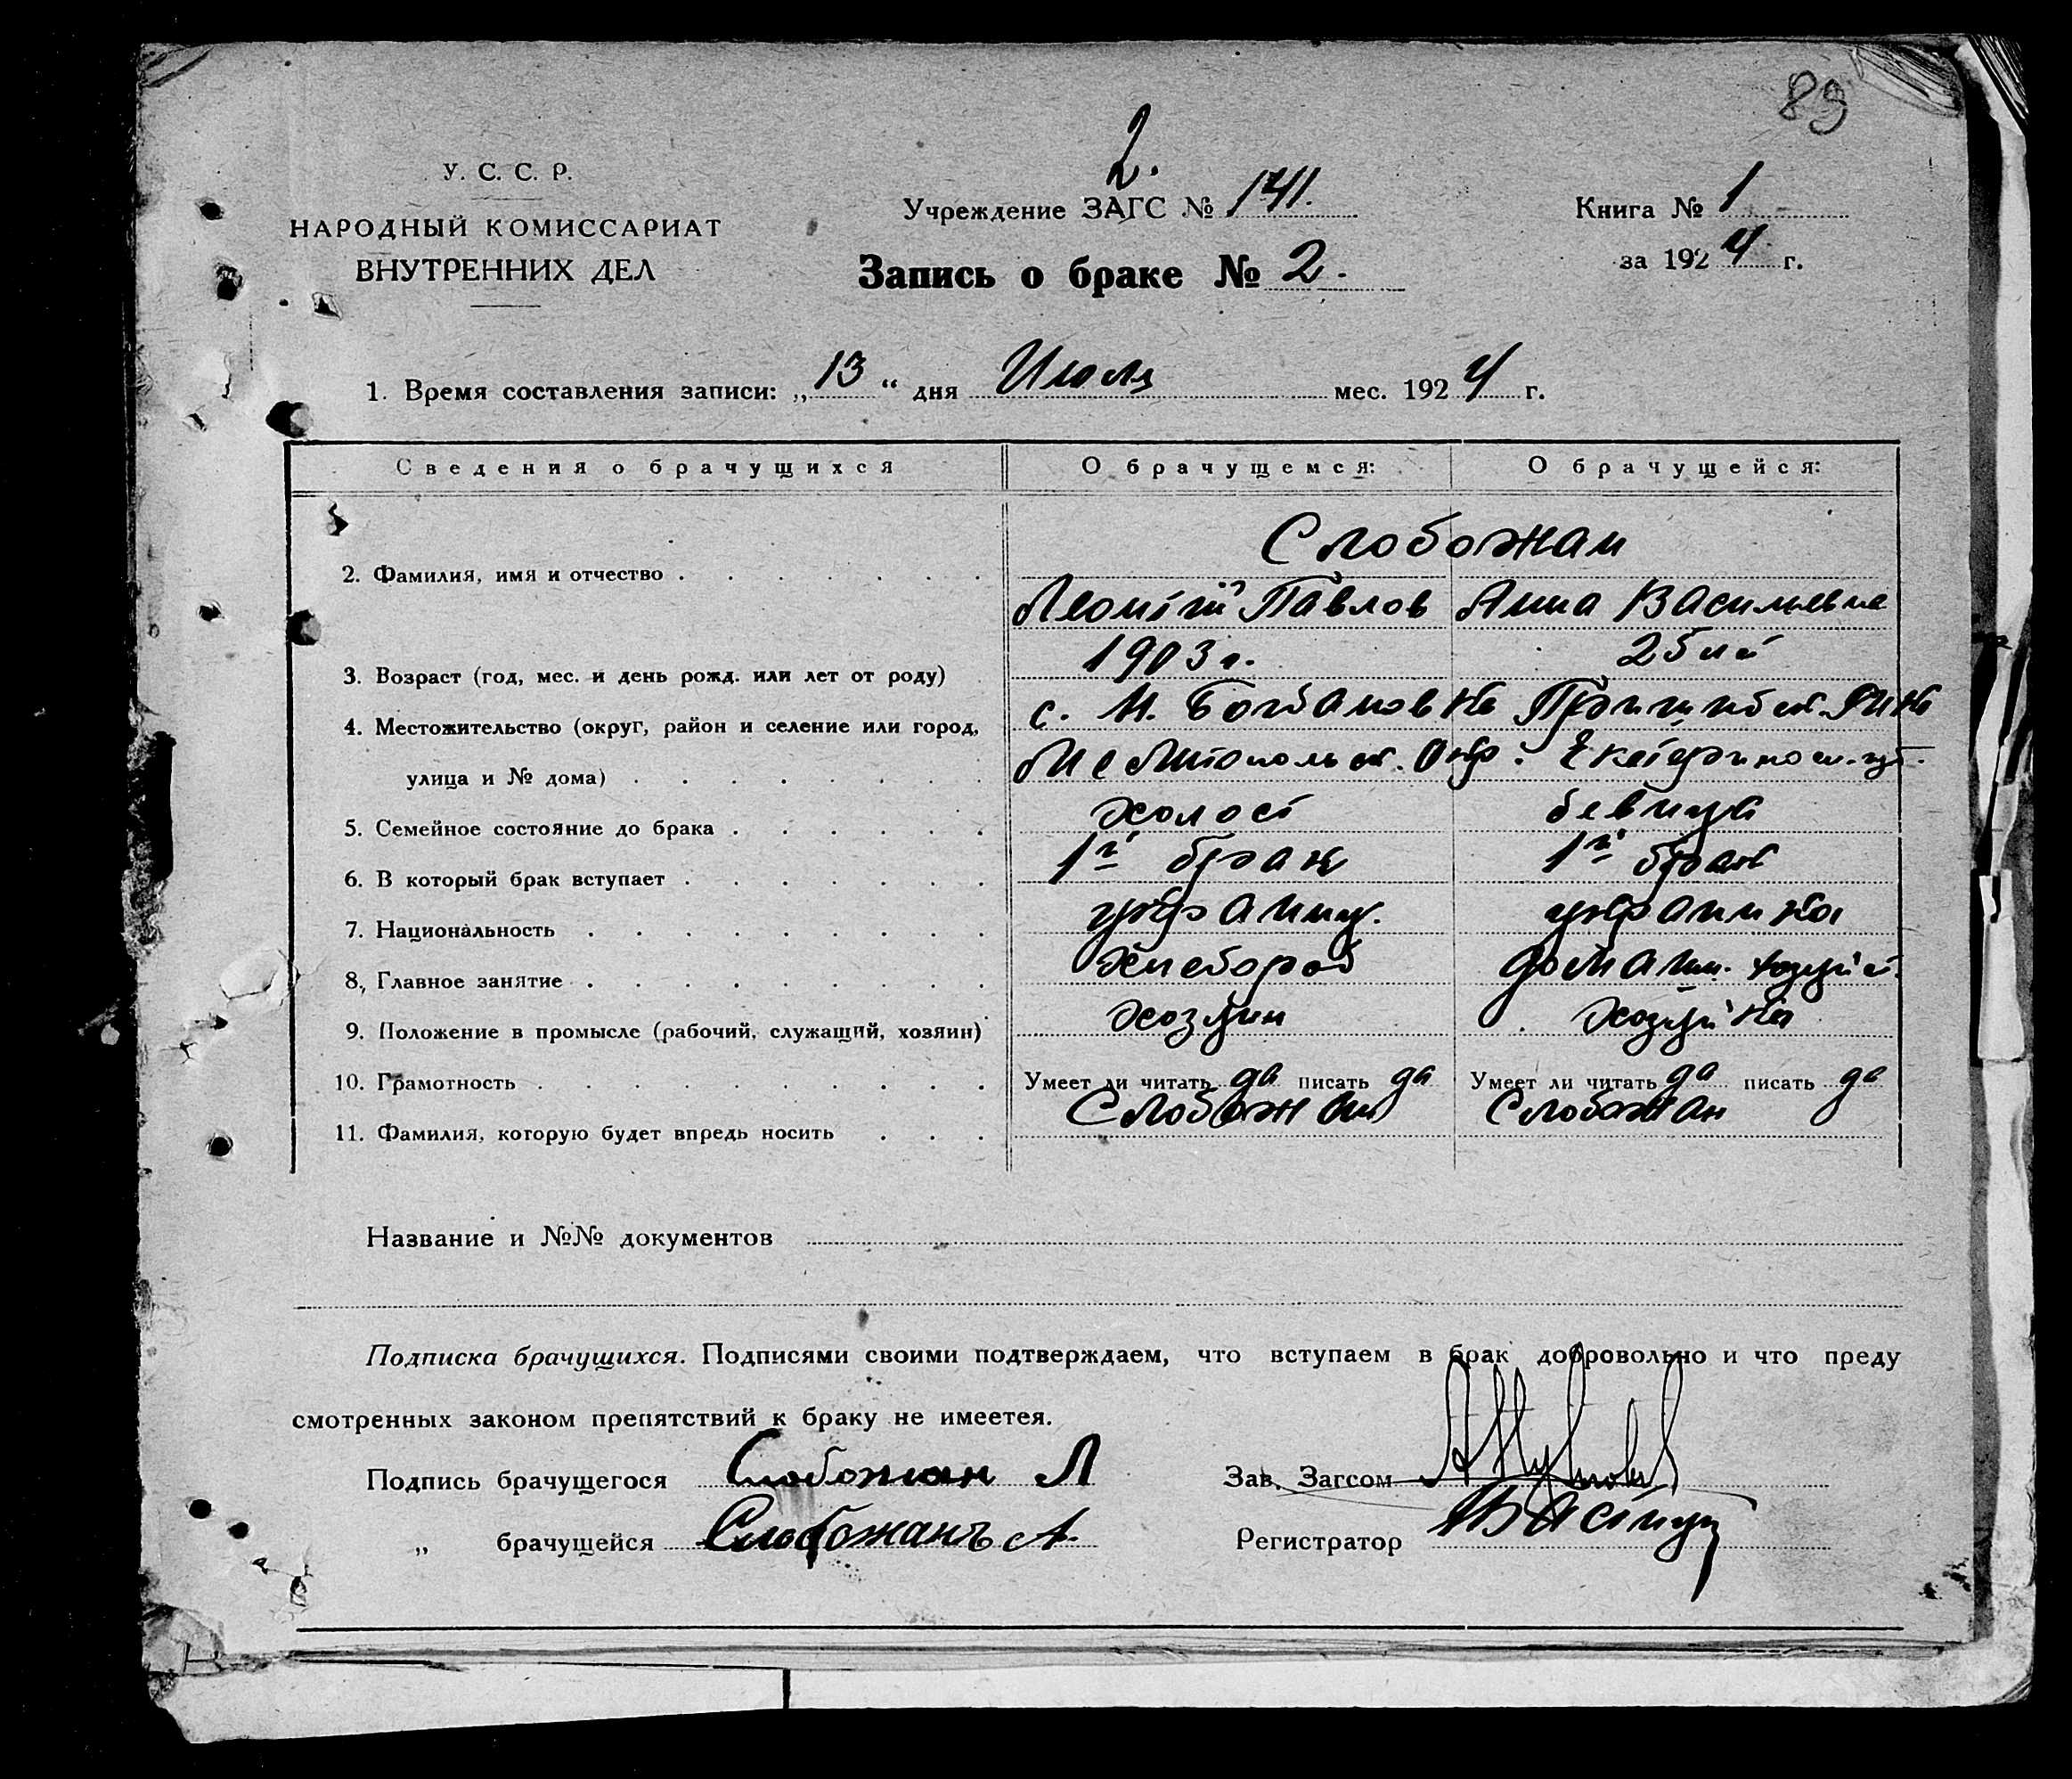 89
2.
У. С. С. Р.
НАРОДНЫЙ КОМИССАРИАТ
ВНУТРЕННИХ ДЕЛ
Учреждение ЗАГС № 141.
Запись о браке № 2.
Книга № 1
за 1924 г.
1. Время составления записи: „13“ дня Июля мес. 1924 г.
Сведения о брачущихся О брачущемся: О брачущейся:
Слобожан
2. Фамилия, имя и отчество Леонтій Павлов Анна Васильевна
3. Возраст (год, мес. и день рожд. или лет от роду) 1903 г. 25 лѣ
4. Местожительство (округ, район и селение или город, с. Н. Богдановка Пришибск. Рик
улица и № дома) Мелитопольск. Окр. Екатериносл. губ.
5. Семейное состояние до брака холост девица
6. В который брак вступает 1й брак 1й брак
7. Национальность украинц. украинка
8, Главное занятие хлебороб домашн. хозяй.
9. Положение в промысле (рабочий, служащий, хозяин) хозяин хозяйка
10. Грамотность Умеет ли читать да писать да Умеет ли читать да писать да
11. Фамилия, которую будет впредь носить Слобожан Слобожан
Название и №№ документов
Подписка брачущихся. Подписями своими подтверждаем, что вступаем в брак добровольно и что преду
смотренных законом препятствий к браку не имеетея.
Подпись брачущегося Слобожан Л Зав. Загсом
„ брачущейся Слобожанъ А. Регистратор